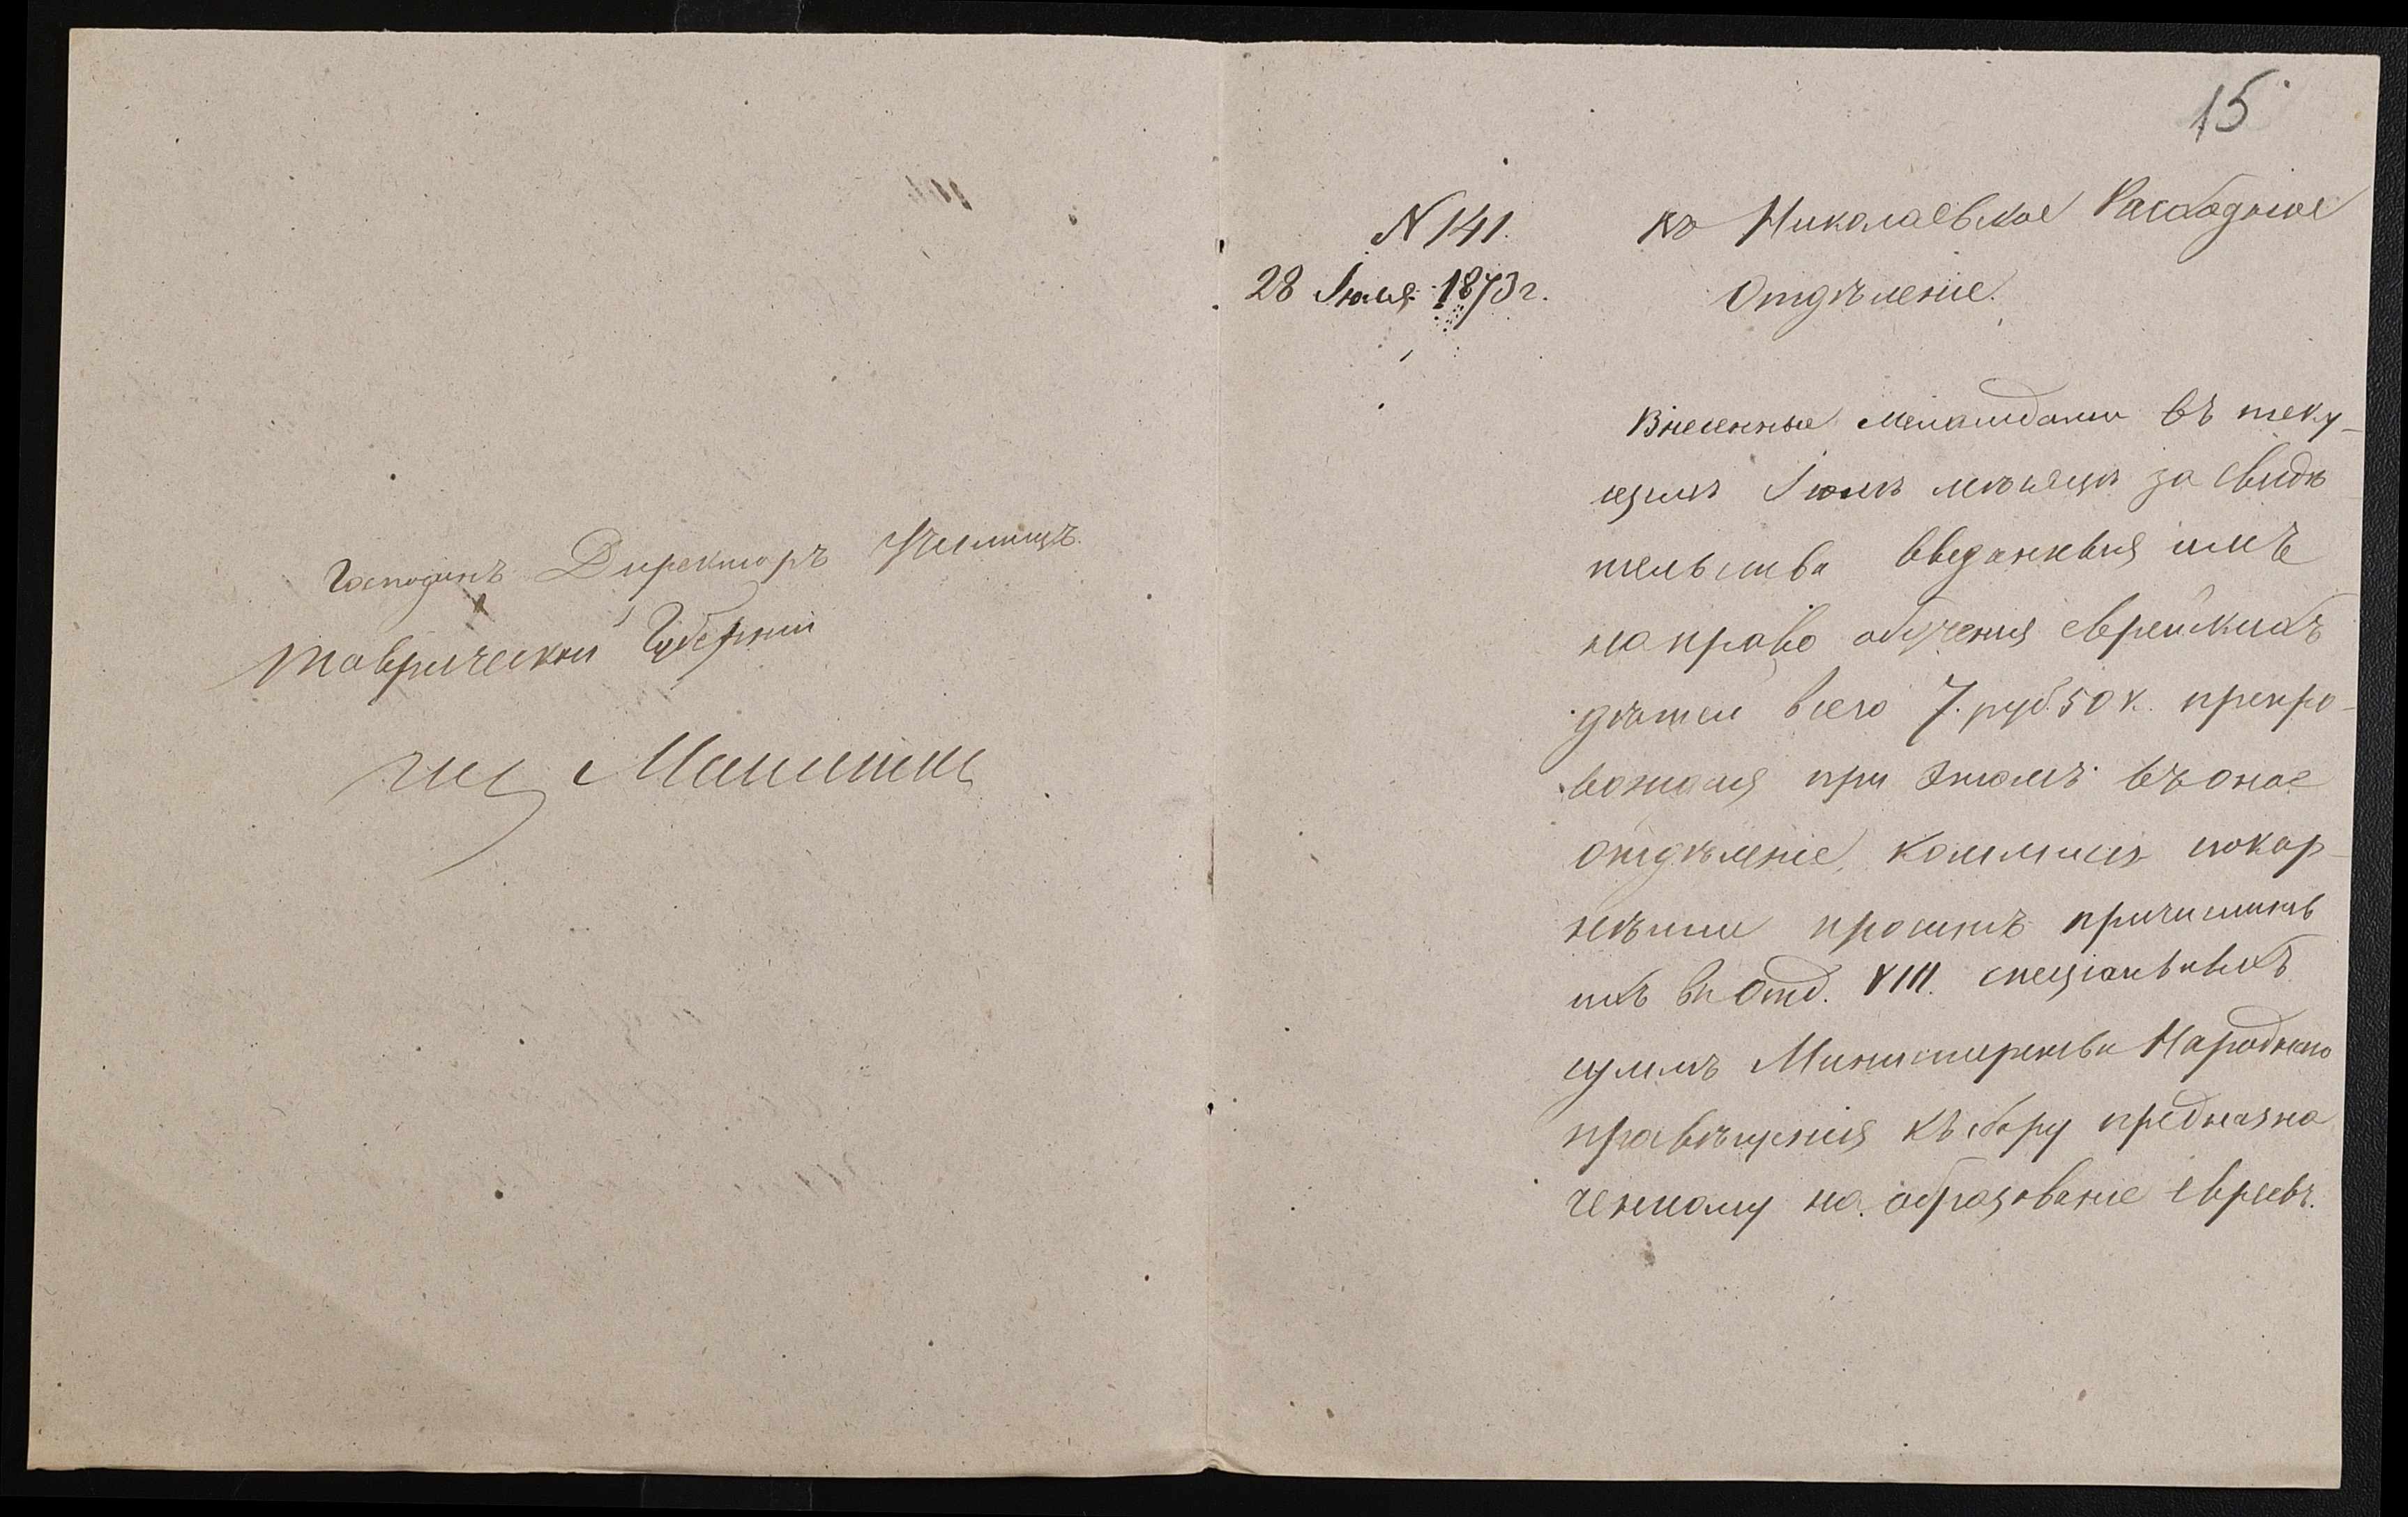 Господинъ Директоръ Училищъ
Таврической Губерніи
15
N 141.
28 Іюля 1873 г.
въ Николаевское Расходное
Отдѣленіе.
Внесенные Меламдами въ теку-
щемъ Іюлѣ мѣсяцѣ за свидѣ
тельства выданныя имъ
на право обученія еврейскихъ
дѣтей всего 7. руб. 50 к. препро-
вождая при этомъ въ оное
отдѣленіе, коммисія покор-
нѣйше проситъ причислить
ихъ въ Отд. VIII. спеціальныхъ
суммъ Министерства Народнаго
просвѣщенія къ сбору предназна
ченному на образованіе Евреевъ.